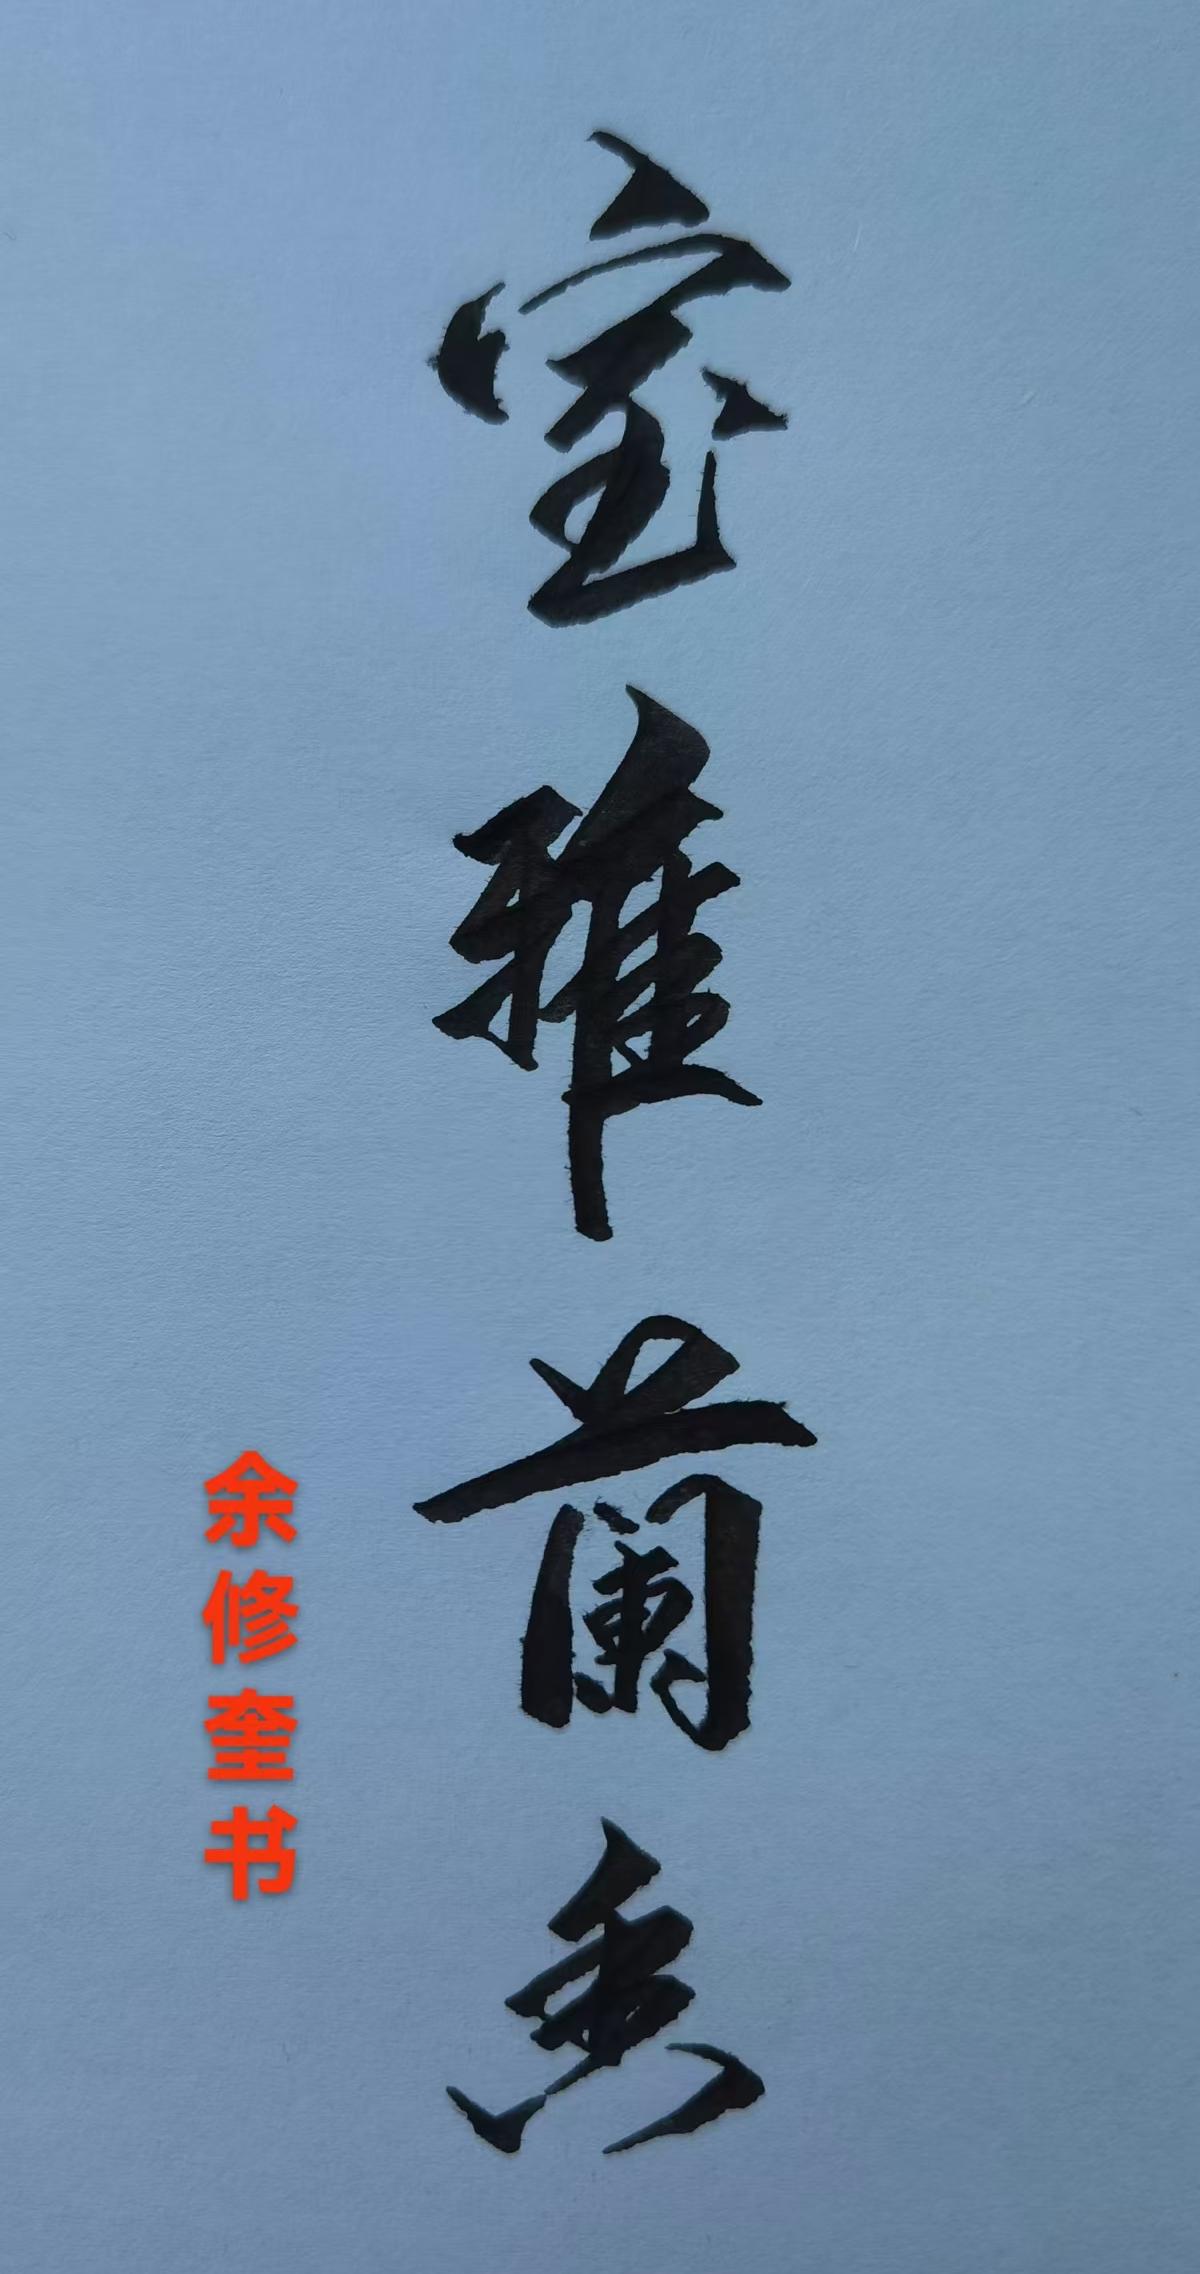 室雅蘭香
余修奎书